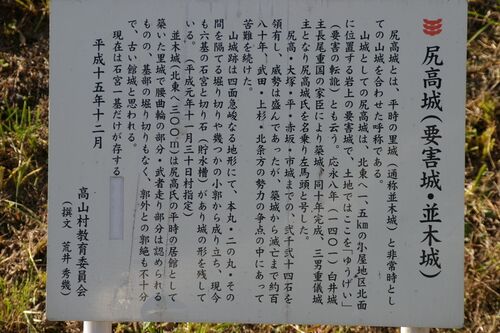 尻高城(要害城・並木城)
尻高城とは、平時の里城(通称並木城)と非常時とし
ての山城を合わせた呼称である。
山城としての尻高城は、北東へ一、五kmの小屋地区北面
に位置する岩上の要害城で、土地ではここを「ゆうげい」
(要害の転訛)とも云う。応永八年(一四〇一)白井城
主長尾重国の家臣により築城、同十年完成、三男重儀城
主となり尻高城氏を名乗り左馬頭と号した。
尻高・大塚・平・赤坂・市城までの、弐千弐十四石を
領有し、威勢は盛んであったが、築城から滅亡まで約百
八十年、武田・上杉・北条方の勢力の争点の中にあって
苦難を続けた。
山城跡は四面急峻なる地形にて、本丸・二の丸・その
間を隔てる堀り切りや幾つかの小郭から成り立ち、現今
も六基の石宮と切り石(貯水槽)があり城の形を残して
いる。(平成元年十一月三十日村指定)
並木城(北東へ三〇〇m)は尻高氏の平時の居館として
築いた里城で腰曲輪の部分・武者走り部分は認められる
ものの、基部の堀り切りもなく、郭外との郭絶も不十分
で、古い館城と思われる。
現在は石宮一基だけが存する
平成十五年十二月
高山村教育委員会
(撰文 荒井秀幾)